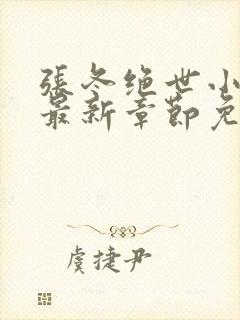 張冬绝世小
最新章節免
虞捷尹